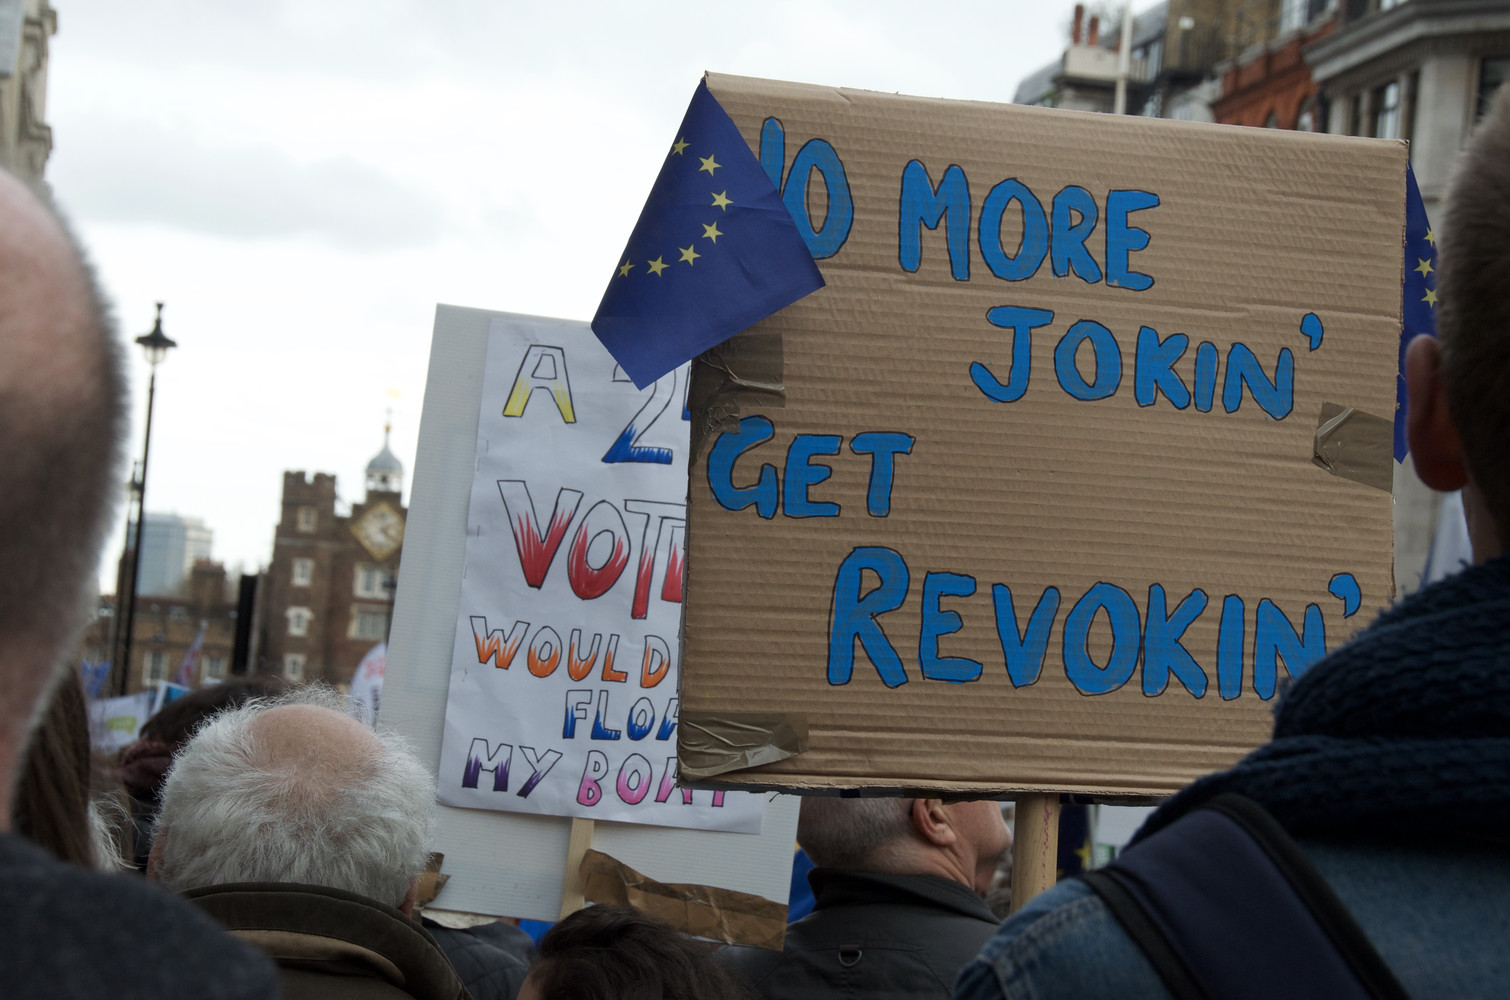 NO MORE
JOKIN'
GET
REVOKIN'
A 2
VOTE
WOULD
FLOA
MY BOAT